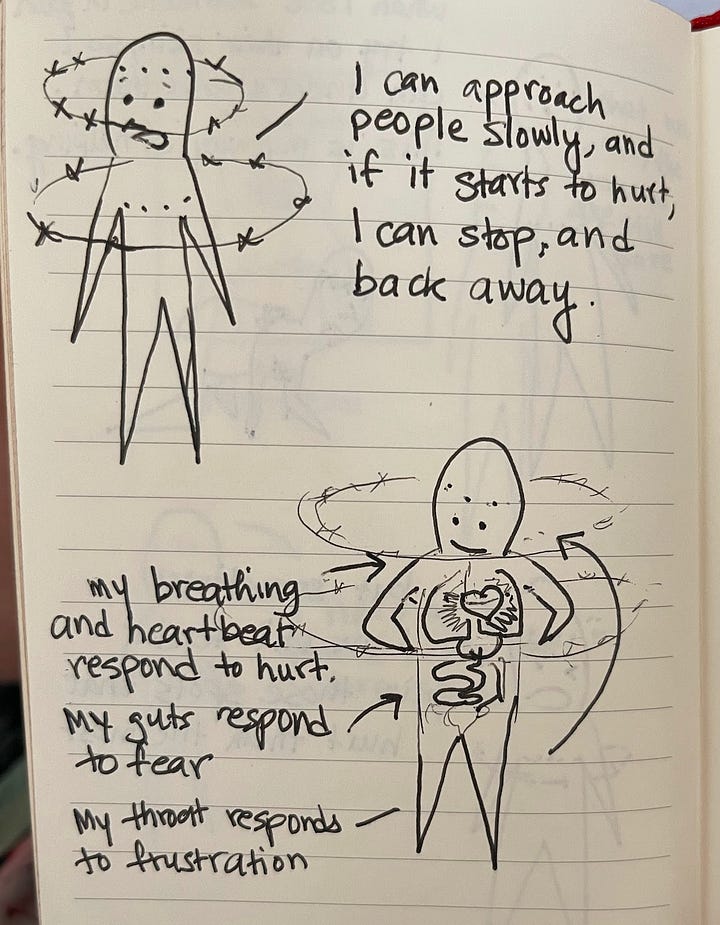 I can approach
people slowly, and
if it starts to hurt,
I can stop, and
back away.
my breathing
and heartbeat
respond to hurt.
My guts respond
to fear
My throat responds
to frustration